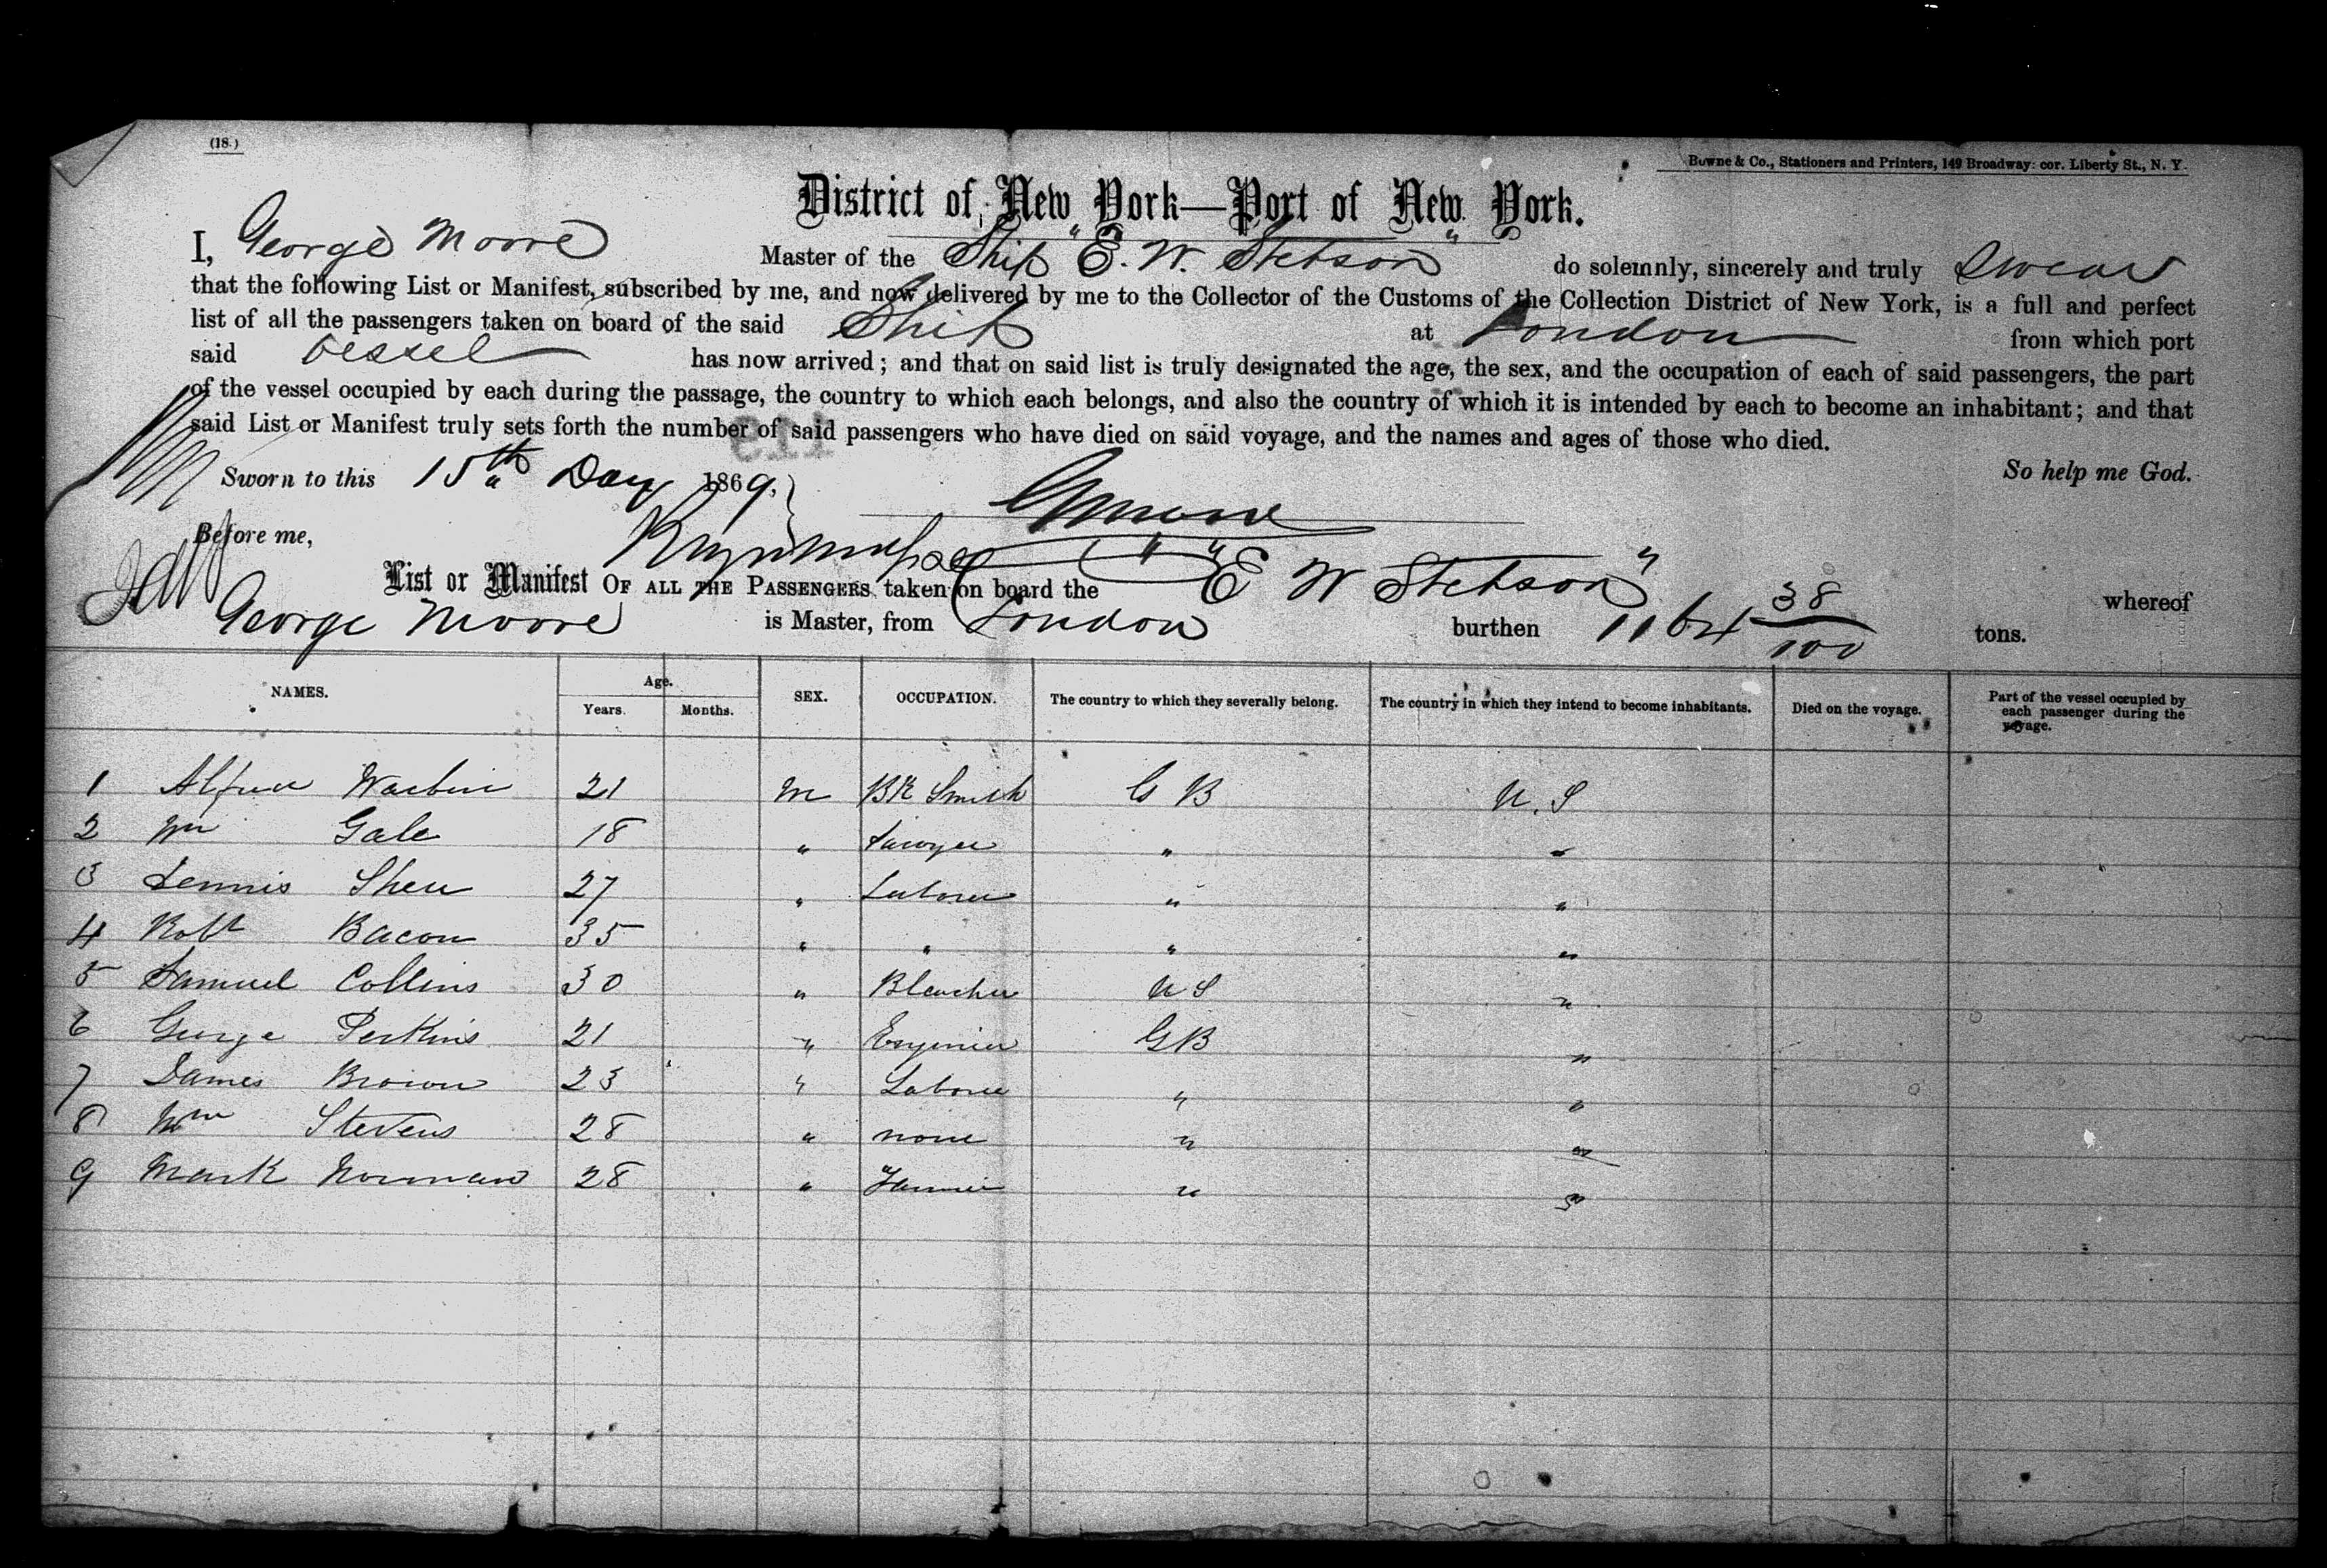 (18.)
Bowne & Co., Stationers and Printers, 149 Broadway: cor. Liberty St., N. Y.
District of New York—Port of New York.
I, George Moore Master of the Ship "E. W. Stetson" do solemnly, sincerely and truly Swear
that the following List or Manifest, subscribed by me, and now delivered by me to the Collector of the Customs of the Collection District of New York, is a full and perfect
list of all the passengers taken on board of the said Ship at London from which port
said Vessel has now arrived; and that on said list is truly designated the age, the sex, and the occupation of each of said passengers, the part
of the vessel occupied by each during the passage, the country to which each belongs, and also the country of which it is intended by each to become an inhabitant; and that
said List or Manifest truly sets forth the number of said passengers who have died on said voyage, and the names and ages of those who died.
Sworn to this 15th Day 1869, So help me God.
GMoore
Before me,
List or Manifest OF ALL THE PASSENGERS taken on board the "E W Stetson" whereof
George Moore is Master, from London burthen 1164 38/100 tons.
NAMES. Age. Years. Months. SEX. OCCUPATION. The country to which they severally belong. The country in which they intend to become inhabitants. Died on the voyage. Part of the vessel occupied by each passenger during the voyage.
1 Alfred 21 M Bk Smith G B U. S
2 Wm Gale 18 " Sawyer " "
3 Dennis Shea 27 " Laborer " "
4 Robt Bacon 35 " " " "
5 Samuel Collins 30 " Bleacher U S "
6 George Perkins 21 " Engineer G B "
7 James Brown 23 " Laborer " "
8 Wm Stevens 28 " none " "
9 Mark Norman 28 " " "